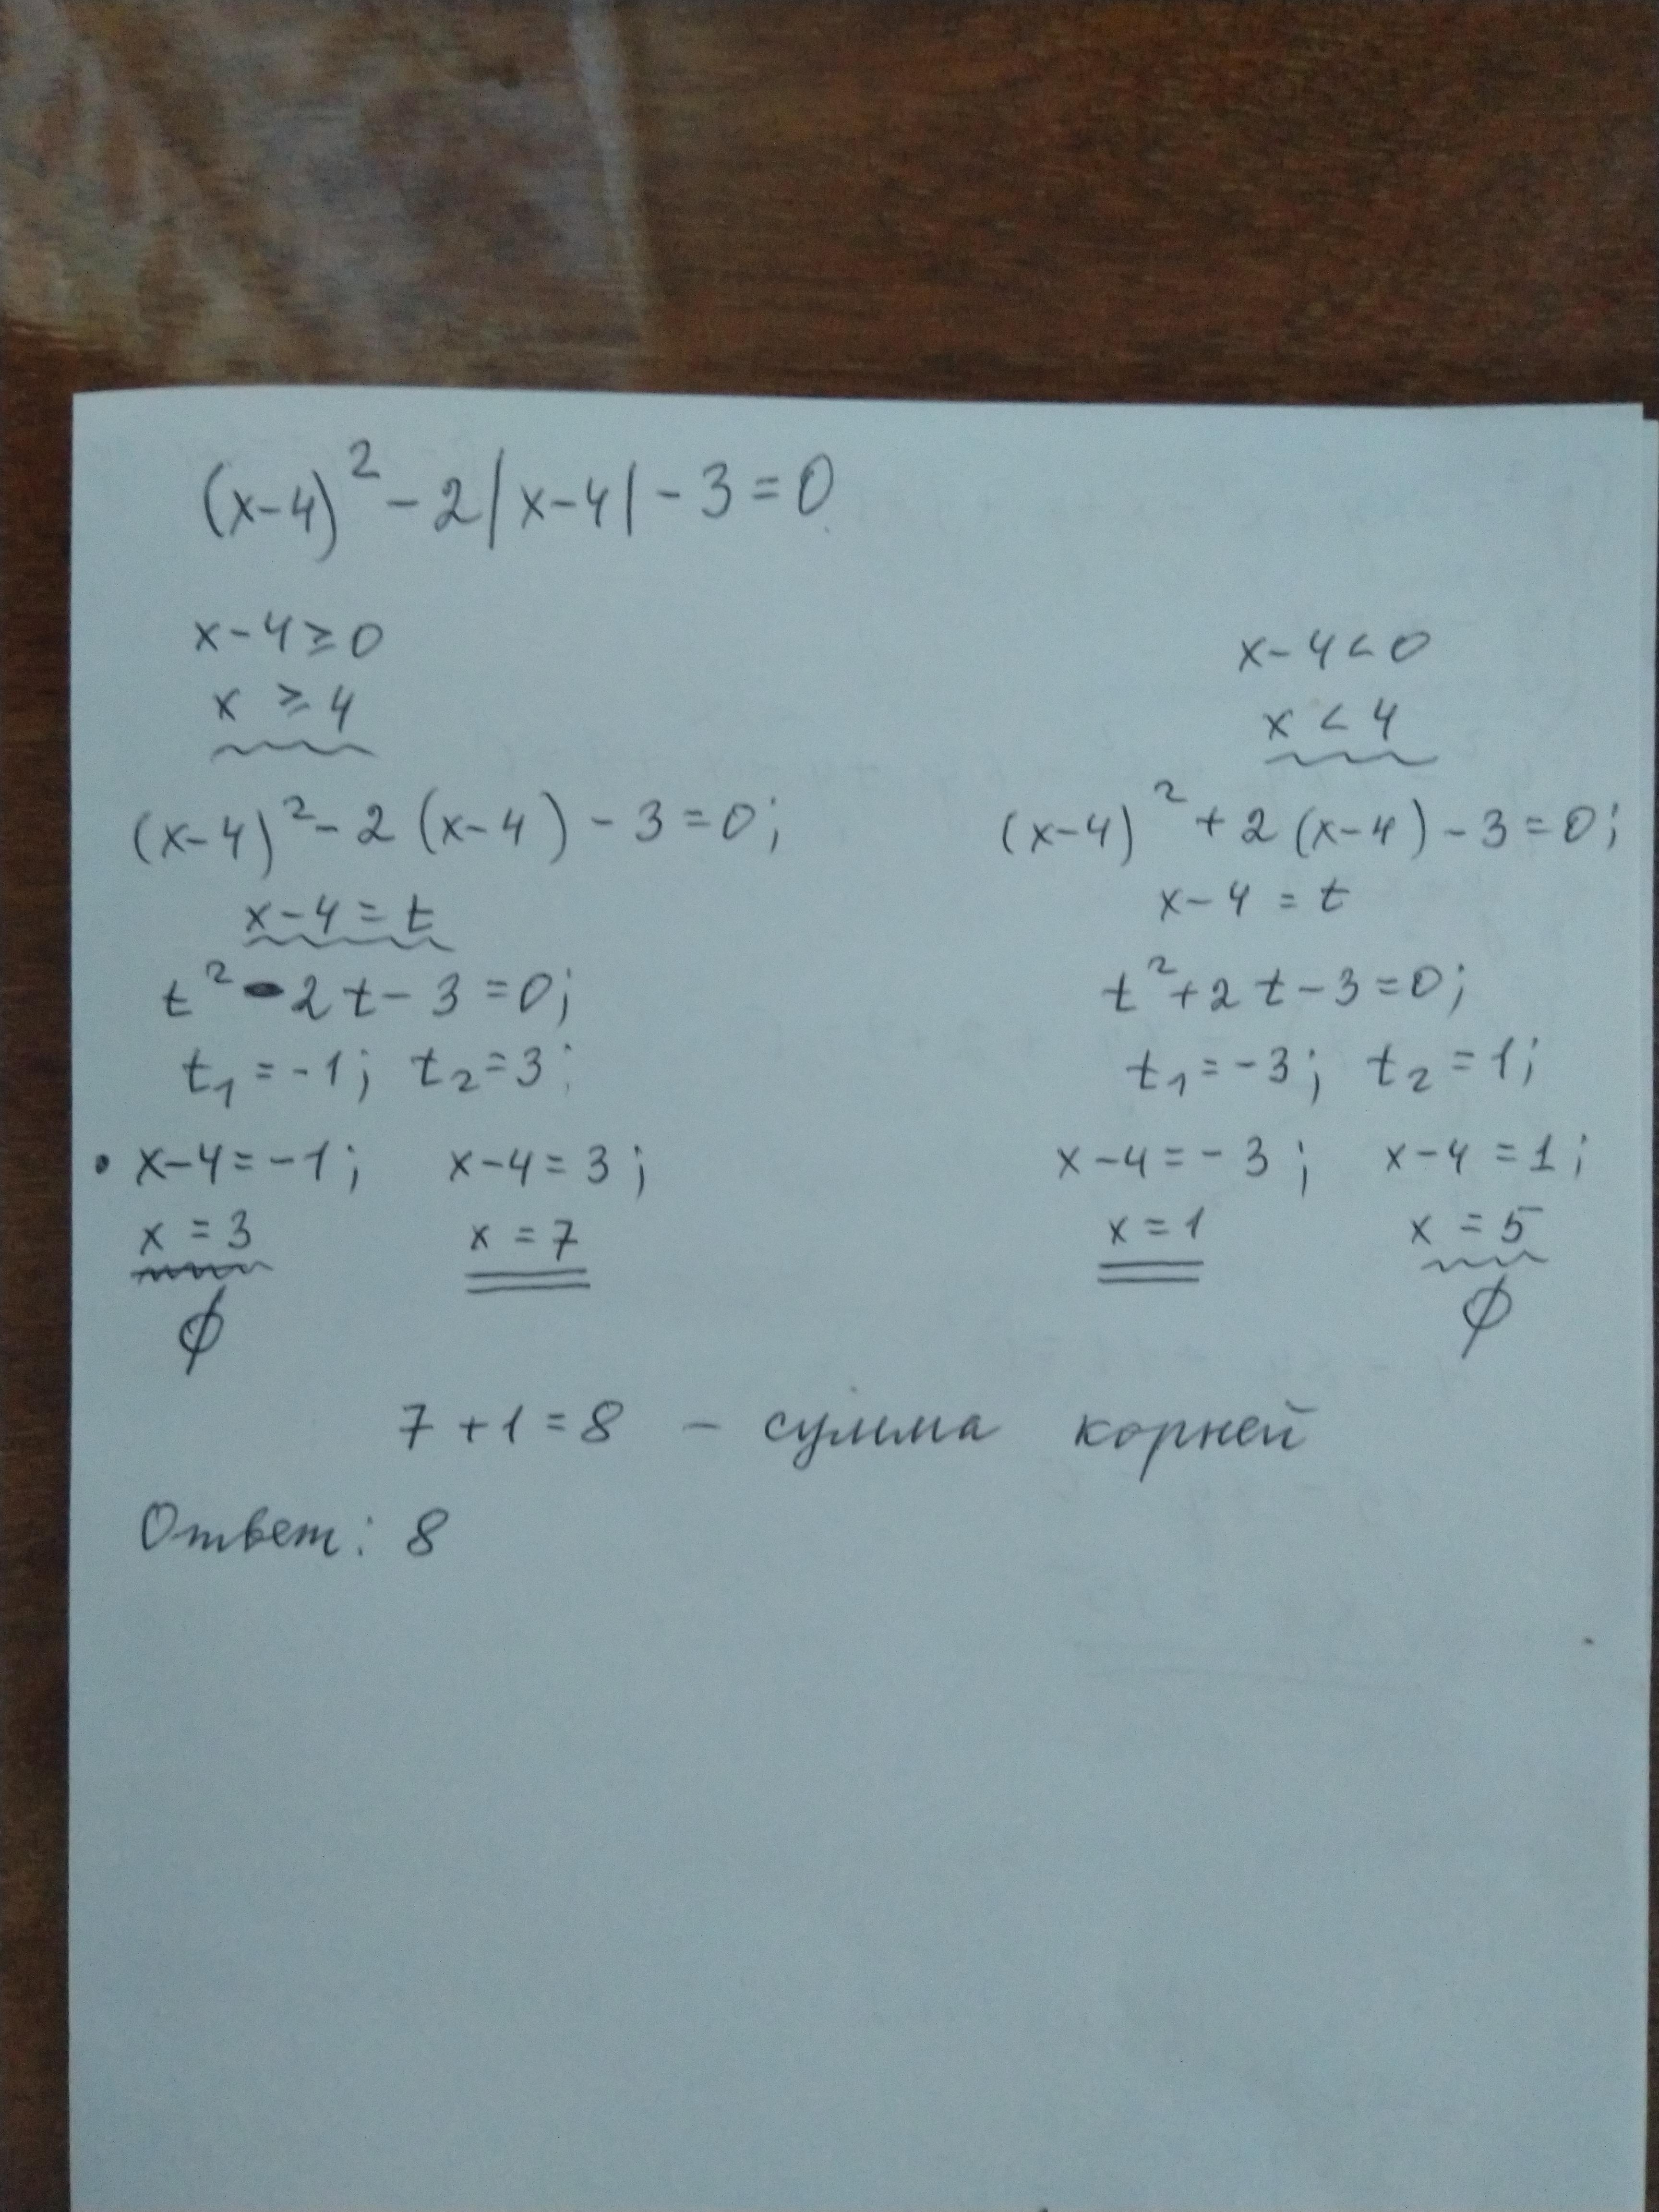 (x-4)² - 2|x-4| - 3 = 0
x-4 ≥ 0
x ≥ 4
(x-4)² - 2(x-4) - 3 = 0;
x-4 = t
t² - 2t - 3 = 0;
t₁ = -1; t₂ = 3;
x-4 = -1; x-4 = 3;
x = 3 x = 7
∅
x-4 < 0
x < 4
(x-4)² + 2(x-4) - 3 = 0;
x-4 = t
t² + 2t - 3 = 0;
t₁ = -3; t₂ = 1;
x-4 = -3; x-4 = 1;
x = 1 x = 5
∅
7 + 1 = 8 - сумма корней
Ответ: 8